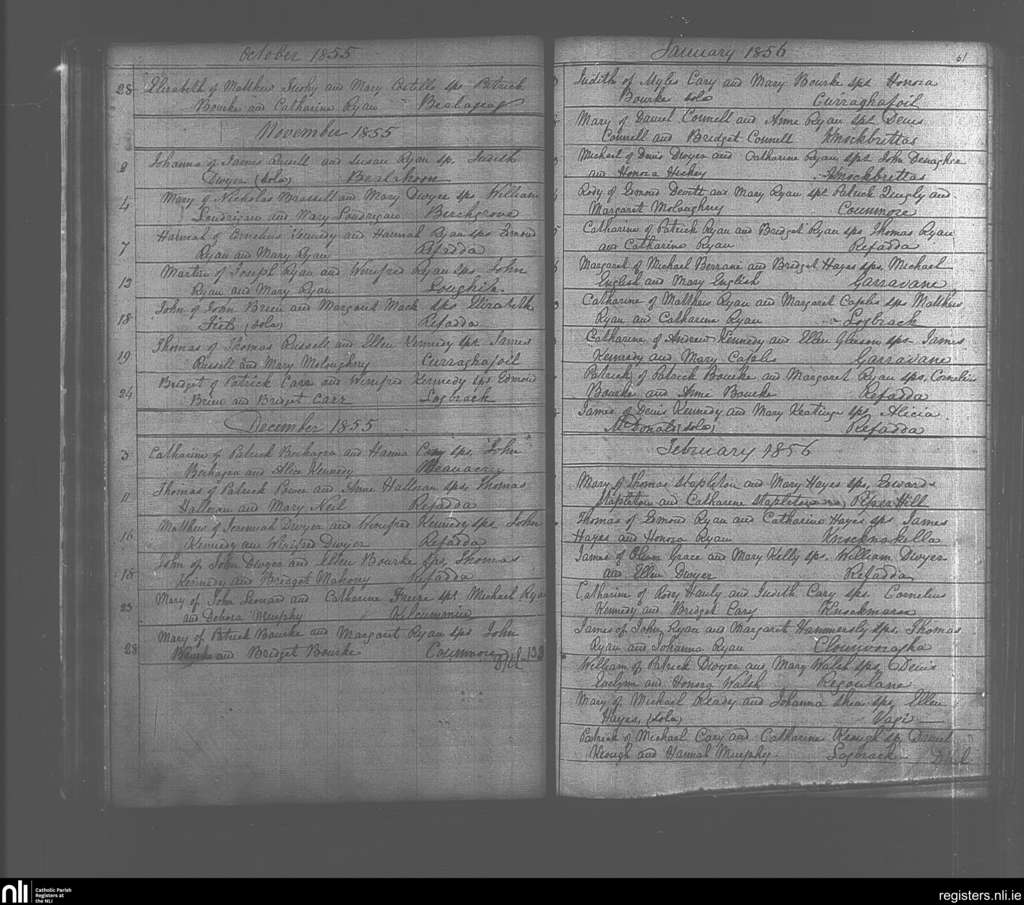 October 1855
28 Elizabeth of Matthew and Mary Costello sps Patrick
Bourke and Catharine Ryan
November 1855
2 Johanna of James Russell and Susan Ryan sp. Judith
Dwyer (sola) Bealahoon
4 Mary of Nicholas Brassell and Mary Dwyer sps William
Londrigan and Mary Londrigan Beechgrove
7 Hannah of Cornelius Kennedy and Hannah Ryan sps Edmond
Ryan and Mary Ryan Refadda
13 Martin of Joseph Ryan and Winifred Ryan sps. John
Ryan and Mary Ryan
18 John of John Breen and Margaret Mack sps Elizabeth
(sola) Refadda
19 Thomas of Thomas Russell and Ellen Kennedy sps. James
Russell and Mary Moloughny Curraghafoil
24 Bridget of Patrick Carr and Winifred Kennedy sps Edmond
and Bridget Carr Logbrack
December 1855
3 Catharine of Patrick and Hanna Cary sps. John
and Alice Kennedy
11 Thomas of Patrick Power and Anne Halloran sps Thomas
Halloran and Mary Neil Refadda
16 Matthew of Jeremiah Dwyer and Winifred Kennedy sps. John
Kennedy and Winifred Dwyer Refadda
18 John of John Dwyer and Ellen Bourke sps. Thomas
Kennedy and Bridget Mahony Refadda
23 Mary of John and Catherine sps Michael Ryan
and Debora Murphy
28 Mary of Patrick Bourke and Margaret Ryan sps John
Bourke and Bridget Bourke Coumnore
January 1856
61
Judith of Myles Cary and Mary Bourke sps Honora
Bourke sola Curraghafoil
Mary of Daniel Connell and Anne Ryan sps. Denis
Connell and Bridget Connell Knockbrettas
Michael of Denis Dwyer and Catharine Ryan sps John
and Honora Hickey Knockbrettas
Rody of Edmond and Mary Ryan sps Patrick Quigly and
Margaret Moloughny Coumnore
Catharine of Patrick Ryan and Bridget Ryan sps Thomas Ryan
and Catharine Ryan Refadda
Margaret of Michael and Bridget Hayes sps. Michael
English and Mary English Garravane
Catharine of Matthew Ryan and Margaret Caples sps Matthew
Ryan and Catharine Ryan Logbrack
Catharine of Andrew Kennedy and Ellen Gleeson sps James
Kennedy and Mary Caples Garravane
Patrick of Patrick Bourke and Margaret Ryan sps. Cornelius
Bourke and Anne Bourke Refadda
James of Denis Kennedy and Mary Keating sps Alicia
McDonald (sola) Refadda
February 1856
Mary of Thomas Stapleton and Mary Hayes sps, Edward
Stapleton and Catharine Stapleton Hill
Thomas of Edmond Ryan and Catharine Hayes sps James
Hayes and Honora Ryan Knocknakella
James of Oliver Grace and Mary Kelly sps. William Dwyer
and Ellen Dwyer Refadda
Catharine of Rody Hanly and Judith Cary sps. Cornelius
Kennedy and Bridget Cary
James of John Ryan and Margaret Hammersly sps. Thomas
Ryan and Johanna Ryan
William of Patrick Dwyer and Mary Walsh sps, Denis
and Honora Walsh
Mary of Michael Ready and Johanna Shea sps Ellen
Hayes, (sola)
Patrick of Michael Cary and Catharine Keough sp Daniel
Keough and Hannah Murphy Logbrack
nli Catholic Parish
Registers at
the NLI
registers.nli.ie